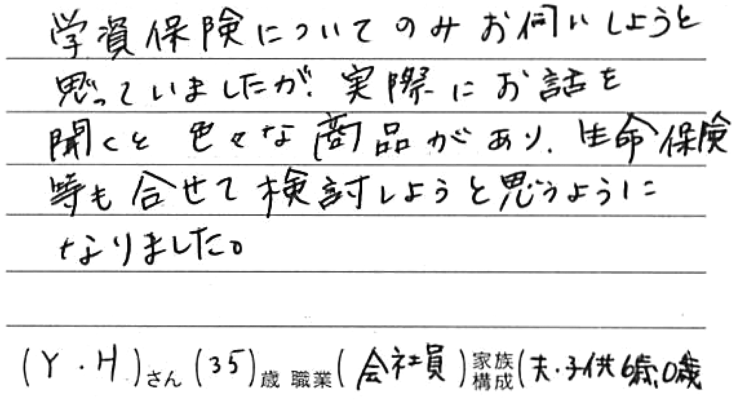 学資保険についてのみお伺いしようと
思っていましたが、実際にお話を
聞くと色々な商品があり、生命保険
等も合せて検討しようと思うように
なりました。
(Y・H)さん(35)歳 職業(会社員)家族構成(夫・子供6歳、0歳